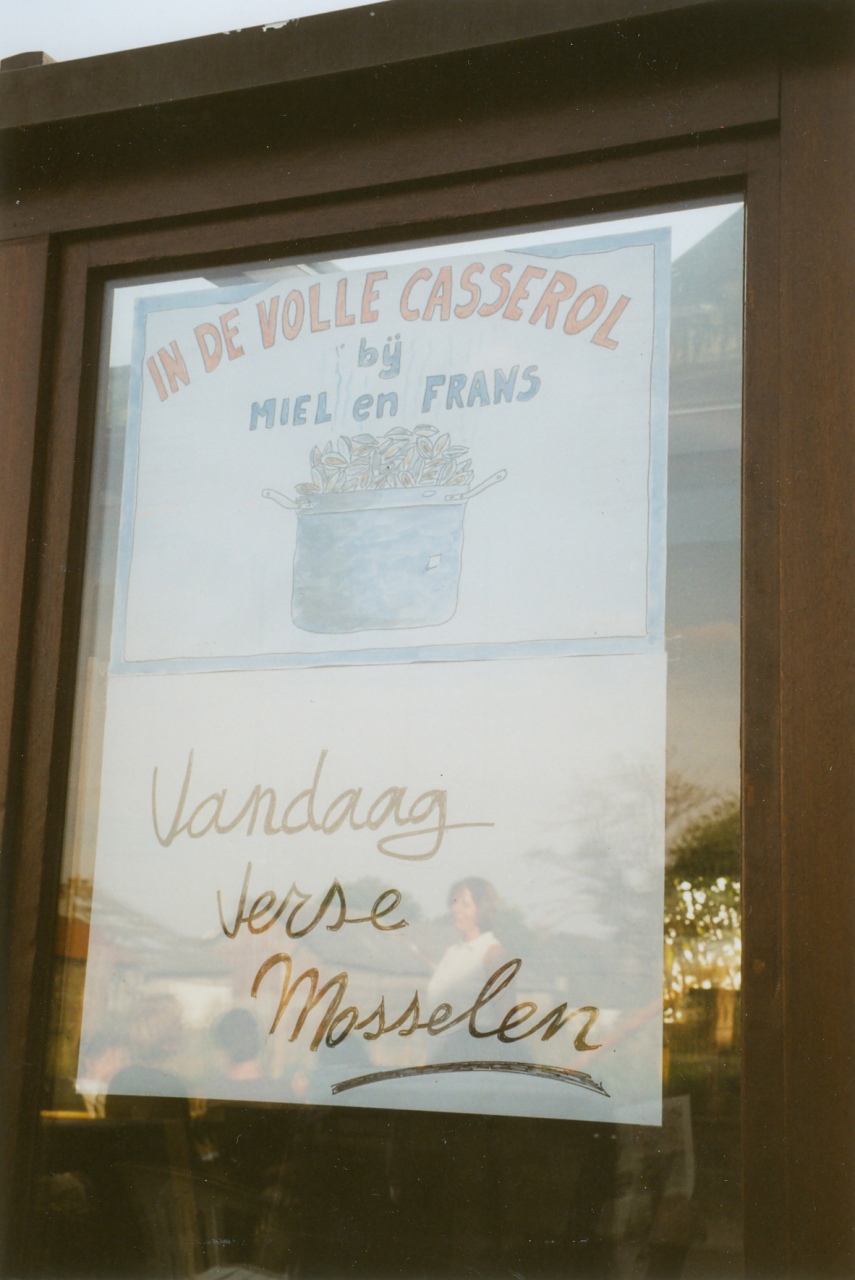 IN DE VOLLE CASSEROL
bij
MIEL en FRANS
Vandaag
Verse
Mosselen